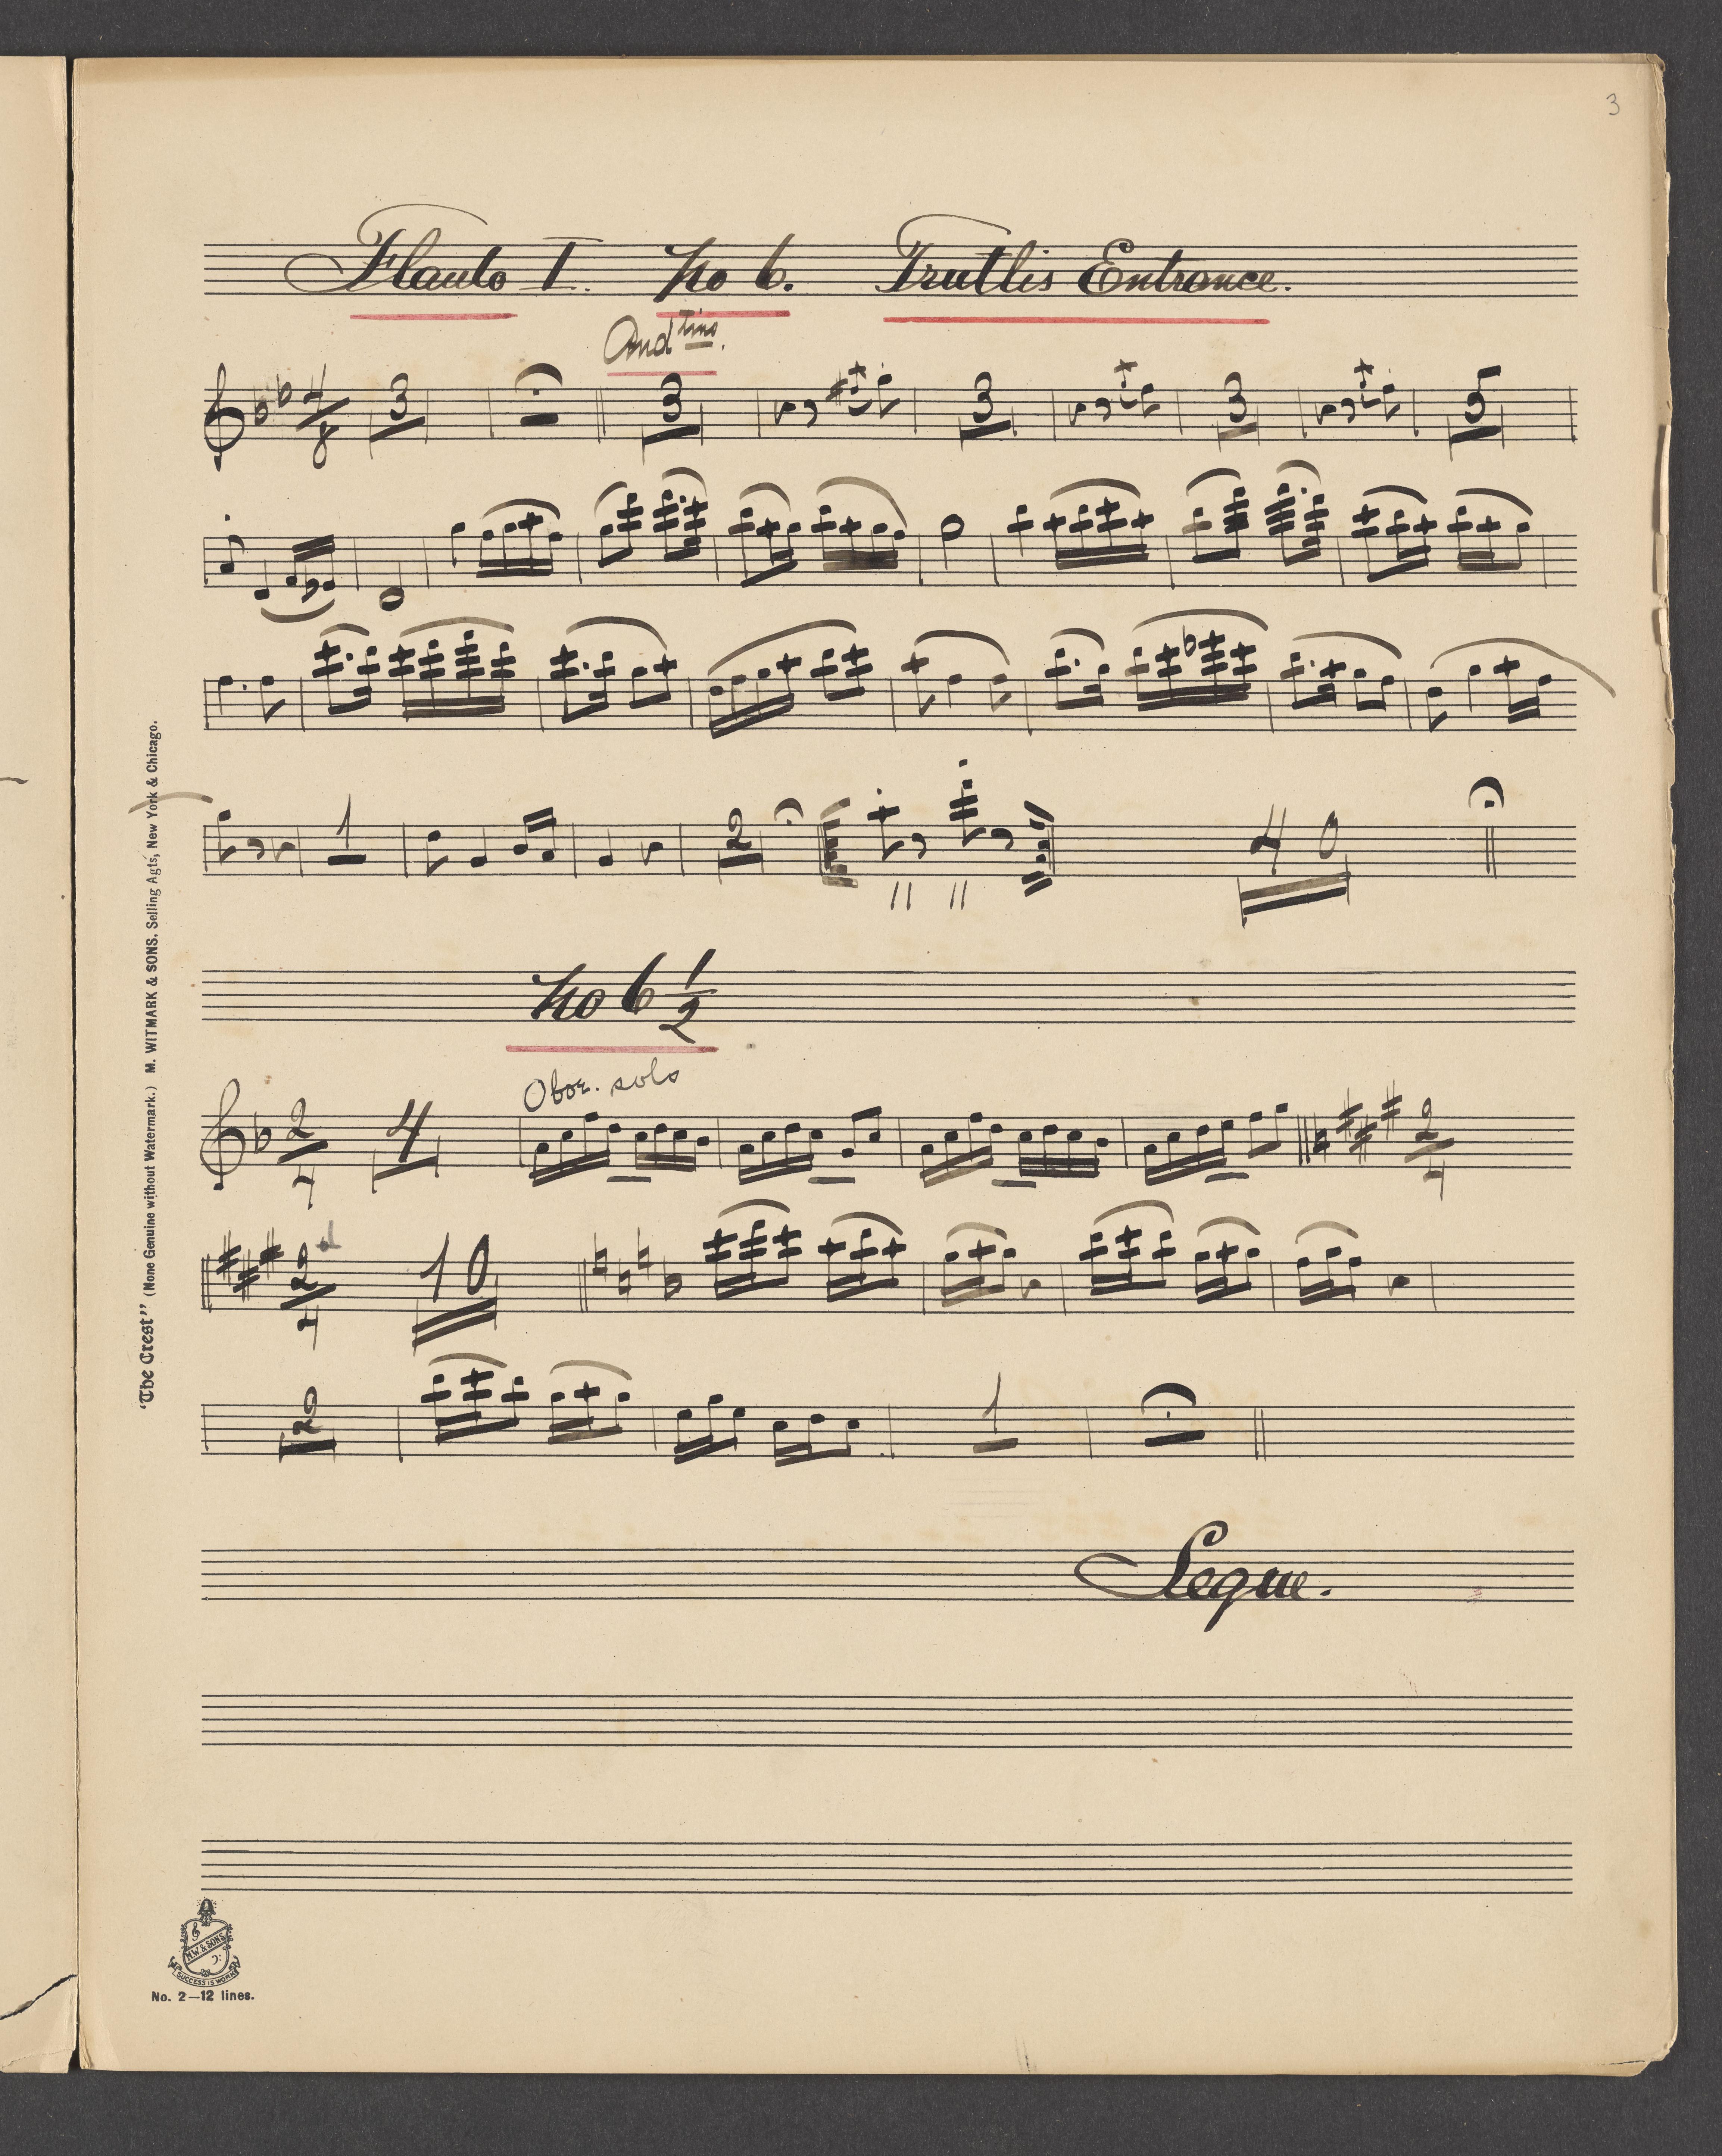 3
Flauto I. No 6. Trutlis Entrance.
And tino.
4/8 3 3 3 3 5
1 2 40
No 6 1/2
Oboe. solo
2/4 4 2/4
2/4 10
2 1
Segue.
"The Crest" (None Genuine without Watermark.) M. WITMARK & SONS, Selling Agts, New York & Chicago.
M.W. & SONS
SUCCESS IS WORK
No. 2—12 lines.